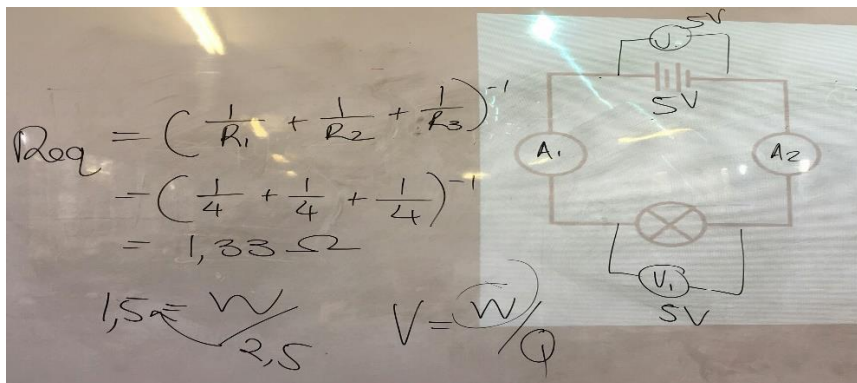 Req = (1/R1 + 1/R2 + 1/R3)^-1
= (1/4 + 1/4 + 1/4)^-1
= 1,33 Ω
1,5 = W/2,5
V = W/Q
5V
V
5V
A1
A2
V1
5V